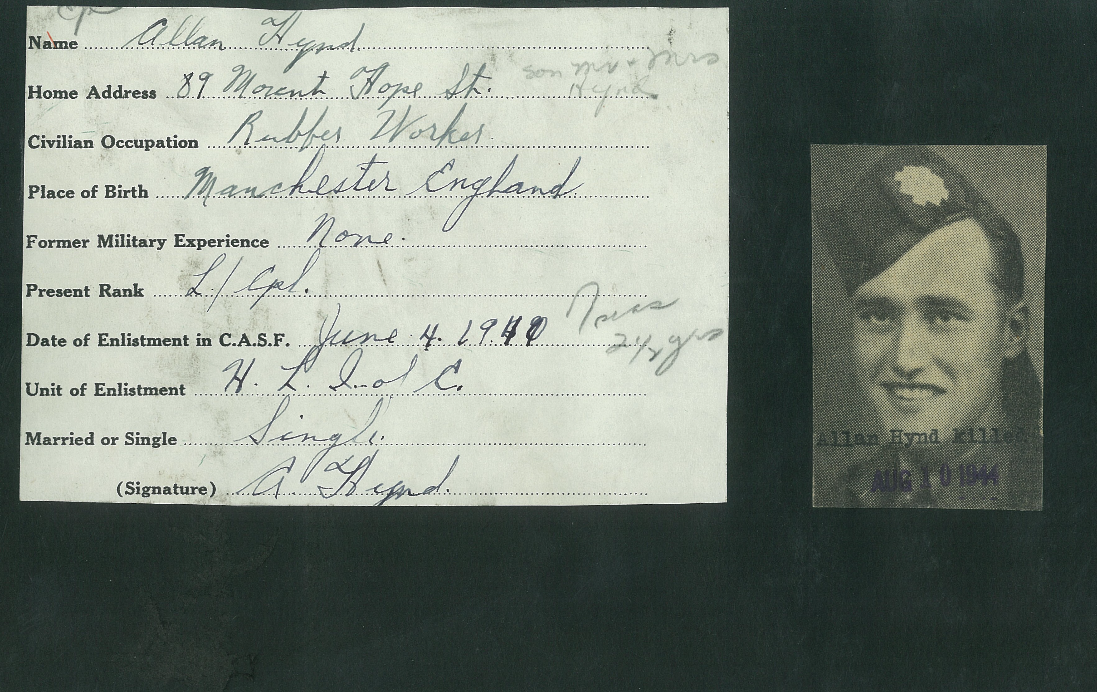 Cpl
Name Allan Hynd
son Mr + Mrs
Hynd
Home Address 89 Mount Hope St.
Civilian Occupation Rubber Worker
Place of Birth Manchester England
Former Military Experience None.
Present Rank L/Cpl.
Date of Enlistment in C.A.S.F. June 4. 1940
2 1/2 yrs
Unit of Enlistment H. L. I. of C.
Married or Single Single.
(Signature) A Hynd.
Allan Hynd Killed
AUG 10 1944